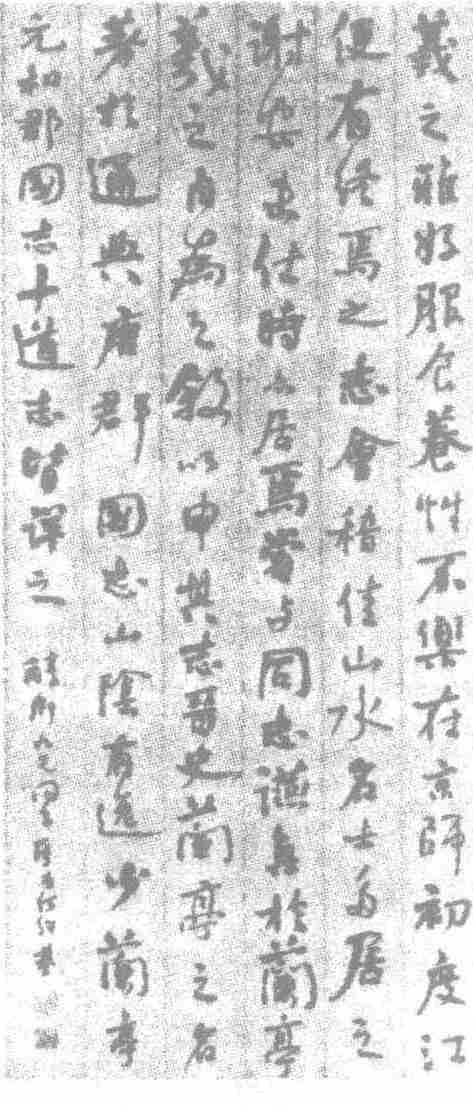 羲之雅好服食養性不樂在京師初度江
便有終焉之志會稽佳山水名士多居之
謝安未仕時亦居焉嘗与同志讌集於蘭亭
羲之自為之敘以申其志晉史蘭亭之名
著於通典唐郡國志山陰有逸少蘭亭
元和郡國志十道志皆詳之